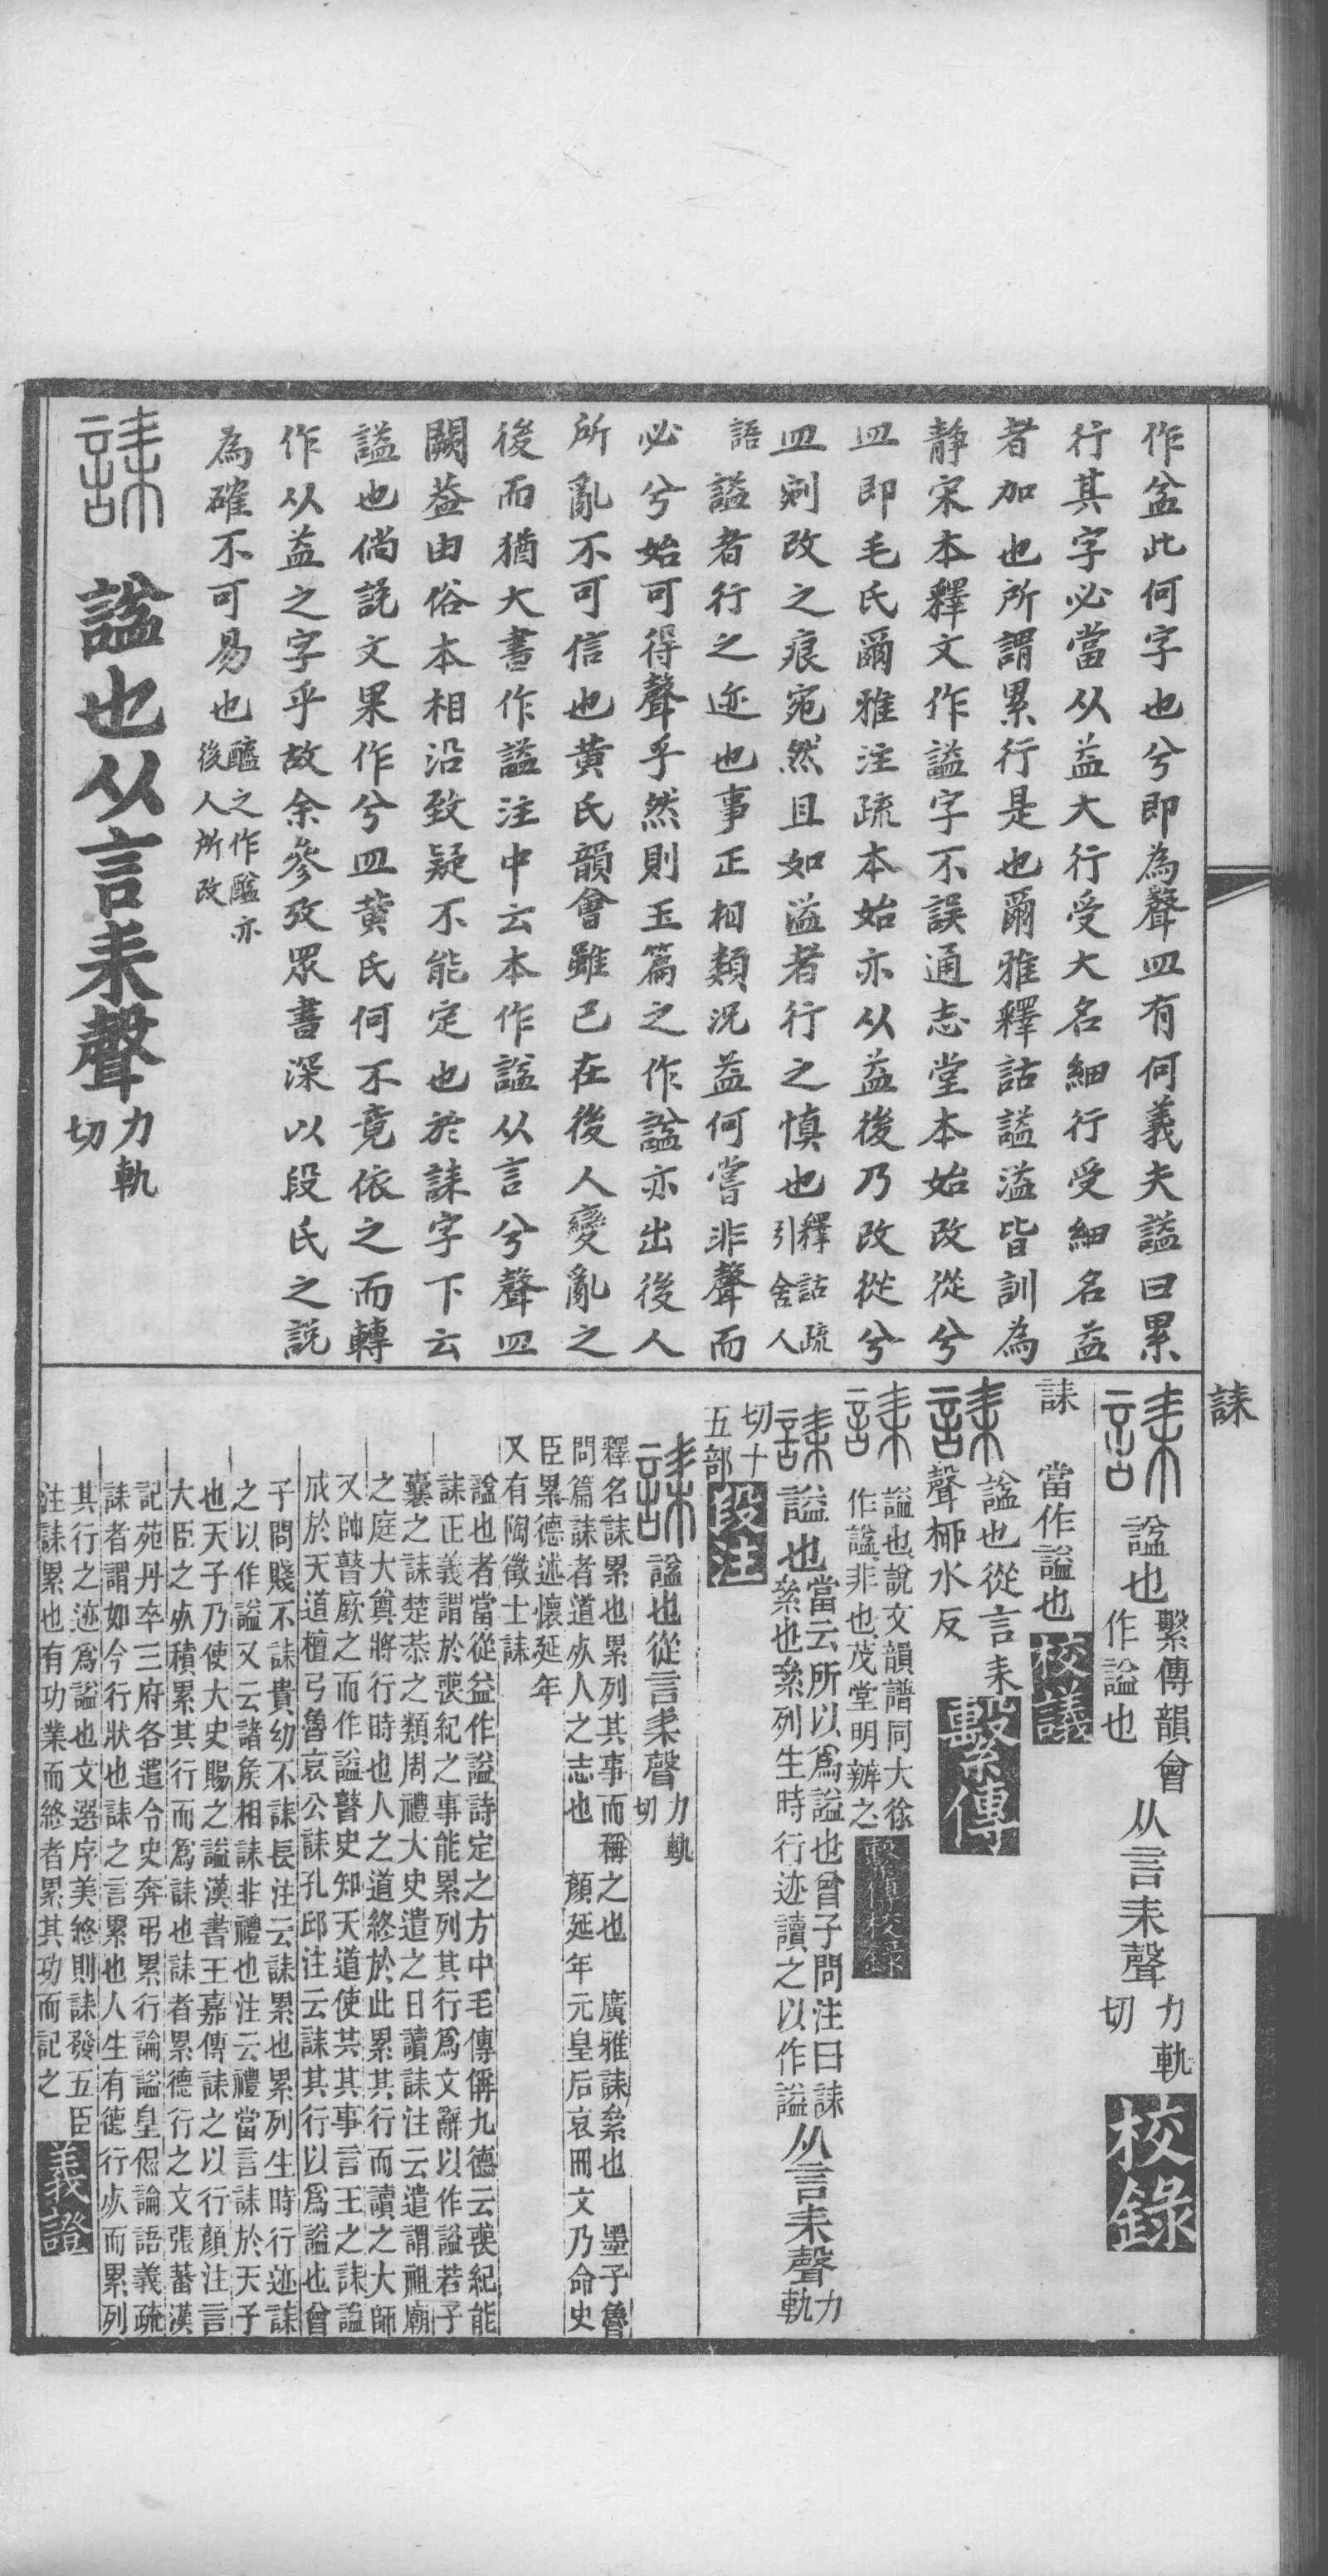 作盆此何字也兮即為聲皿有何義夫謚曰累
行其字必當从益大行受大名細行受細名益
者加也所謂累行是也爾雅釋詁謚溢皆訓為
靜宋本釋文作謚字不誤通志堂本始改從兮
皿即毛氏爾雅注疏本始亦从益後乃改從兮
皿剜改之痕宛然且如溢者行之慎也釋詁疏引舍人
語謚者行之迹也事正相類況益何嘗非聲而
必兮始可得聲乎然則玉篇之作謚亦出後人
所亂不可信也黄氏韻會雖已在後人變亂之
後而猶大書作謚注中云本作諡从言兮聲皿
闕葢由俗本相沿致疑不能定也於誄字下云
謚也倘説文果作兮皿黄氏何不竟依之而轉
作从益之字乎故余參攷眾書深以段氏之説
為確不可易也醯之作醢亦後人所改
誄 諡也从言耒聲力軌切
誄
誄 諡也繫傳韻會作謚也从言耒聲力軌切 校錄
誄 當作謚也 校議
誄 諡也從言耒聲柳水反 繫傳
誄 謚也說文韻譜同大徐作諡非也茂堂明辦之 說文繫傳校錄
誄 謚也當云所以爲謚也曾子問注曰誄絫也絫列生時行迹讀之以作謚从言耒聲力軌
切十五部 段注
誄 諡也從言耒聲力軌切
釋名誄累也累列其事而稱之也 廣雅誄絫也 墨子魯
問篇誄者道㱔人之志也 顏延年元皇后哀冊文乃命史
臣累德述懷延年
又有陶徵士誄
諡也者當從益作謚詩定之方中毛傳偁九德云喪紀能
誄正義謂於喪紀之事能累列其行爲文辭以作謚若子
囊之誄楚恭之類周禮大史遣之日讀誄注云遣謂祖廟
之庭大奠將行時也人之道終於此累其行而讀之大師
又帥瞽廞之而作謚瞽史知天道使共其事言王之誄謚
成於天道檀弓魯哀公誄孔邱注云誄其行以爲謚也曾
子問賤不誄貴幼不誄長注云誄累也累列生時行迹誄
之以作謚又云諸矦相誄非禮也注云禮當言誄於天子
也天子乃使大史賜之謚漢書王嘉傳誄之以行顏注言
大臣之㱔積累其行而爲誄也誄者累德行之文張蕃漢
記苑丹卒三府各遣令史奔弔累行論謚皇侃論語義疏
誄者謂如今行狀也誄之言累也人生有德行㱔而累列
其行之迹爲謚也文選序美終則誄發五臣
注誄累也有功業而終者累其功而記之 義證